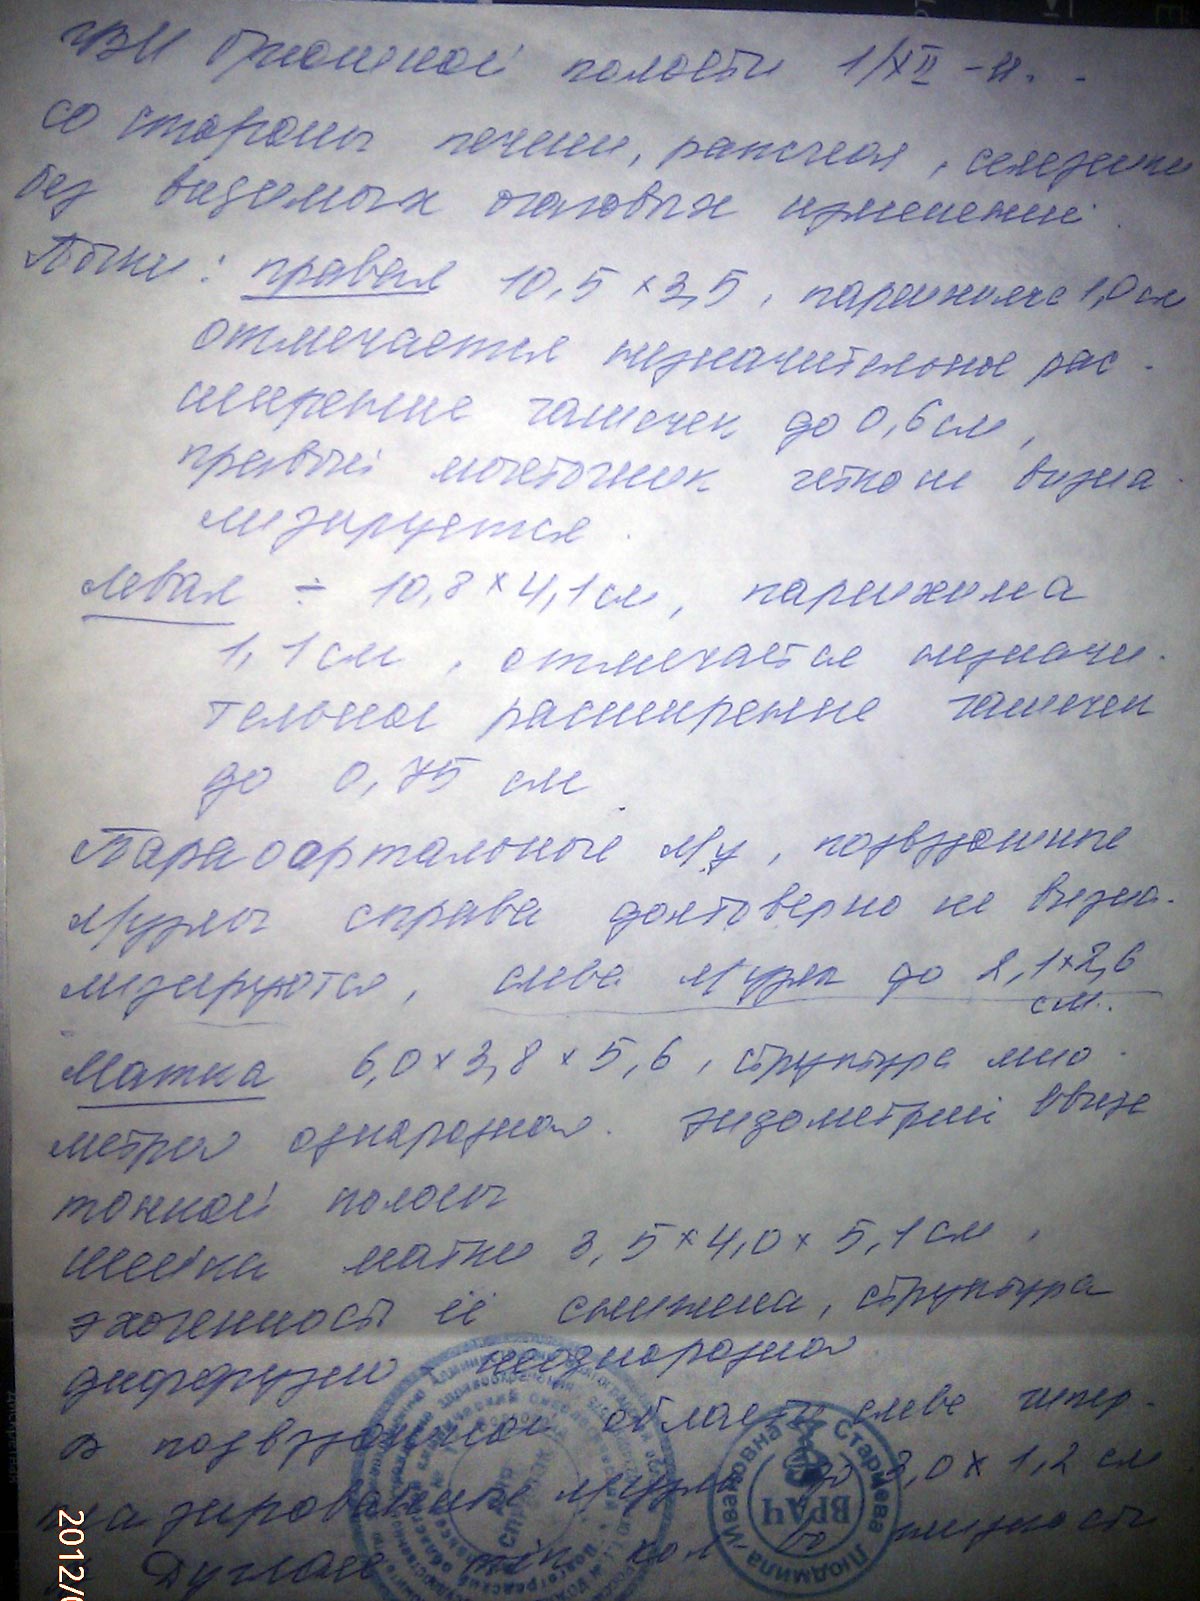 УЗИ брюшной полости 1/XII-11.
со стороны печени, pancreas, селезенки
без видимых очаговых изменений.
Почки: правая 10,5 x 3,5, паренхима 1,0 см
отмечается незначительное рас-
ширение чашечек до 0,6 см,
правый мочеточник четко не визуа-
лизируется.
левая ÷ 10,8 x 4,1 см, паренхима
1,1 см, отмечается незначи-
тельное расширение чашечек
до 0,75 см
Парааортальные л/у, подвздошные
л/узлы справа достоверно не визуа-
лизируются, слева л/узел до 2,1x2,6
см.
Матка 6,0 x 3,8 x 5,6, структура мио-
метрия однородная. эндометрий ввиде
тонкой полосы
шейка матки 3,5 x 4,0 x 5,1 см,
эхогенность её снижена, структура
диффузно неоднородная
в подвздошной области слева гипер-
плазированные л/узлы до 3,0 x 1,2 см
в Дугласе min кол-во жидкости
ДЛЯ СПРАВОК
Старцева Людмила Ивановна
ВРАЧ